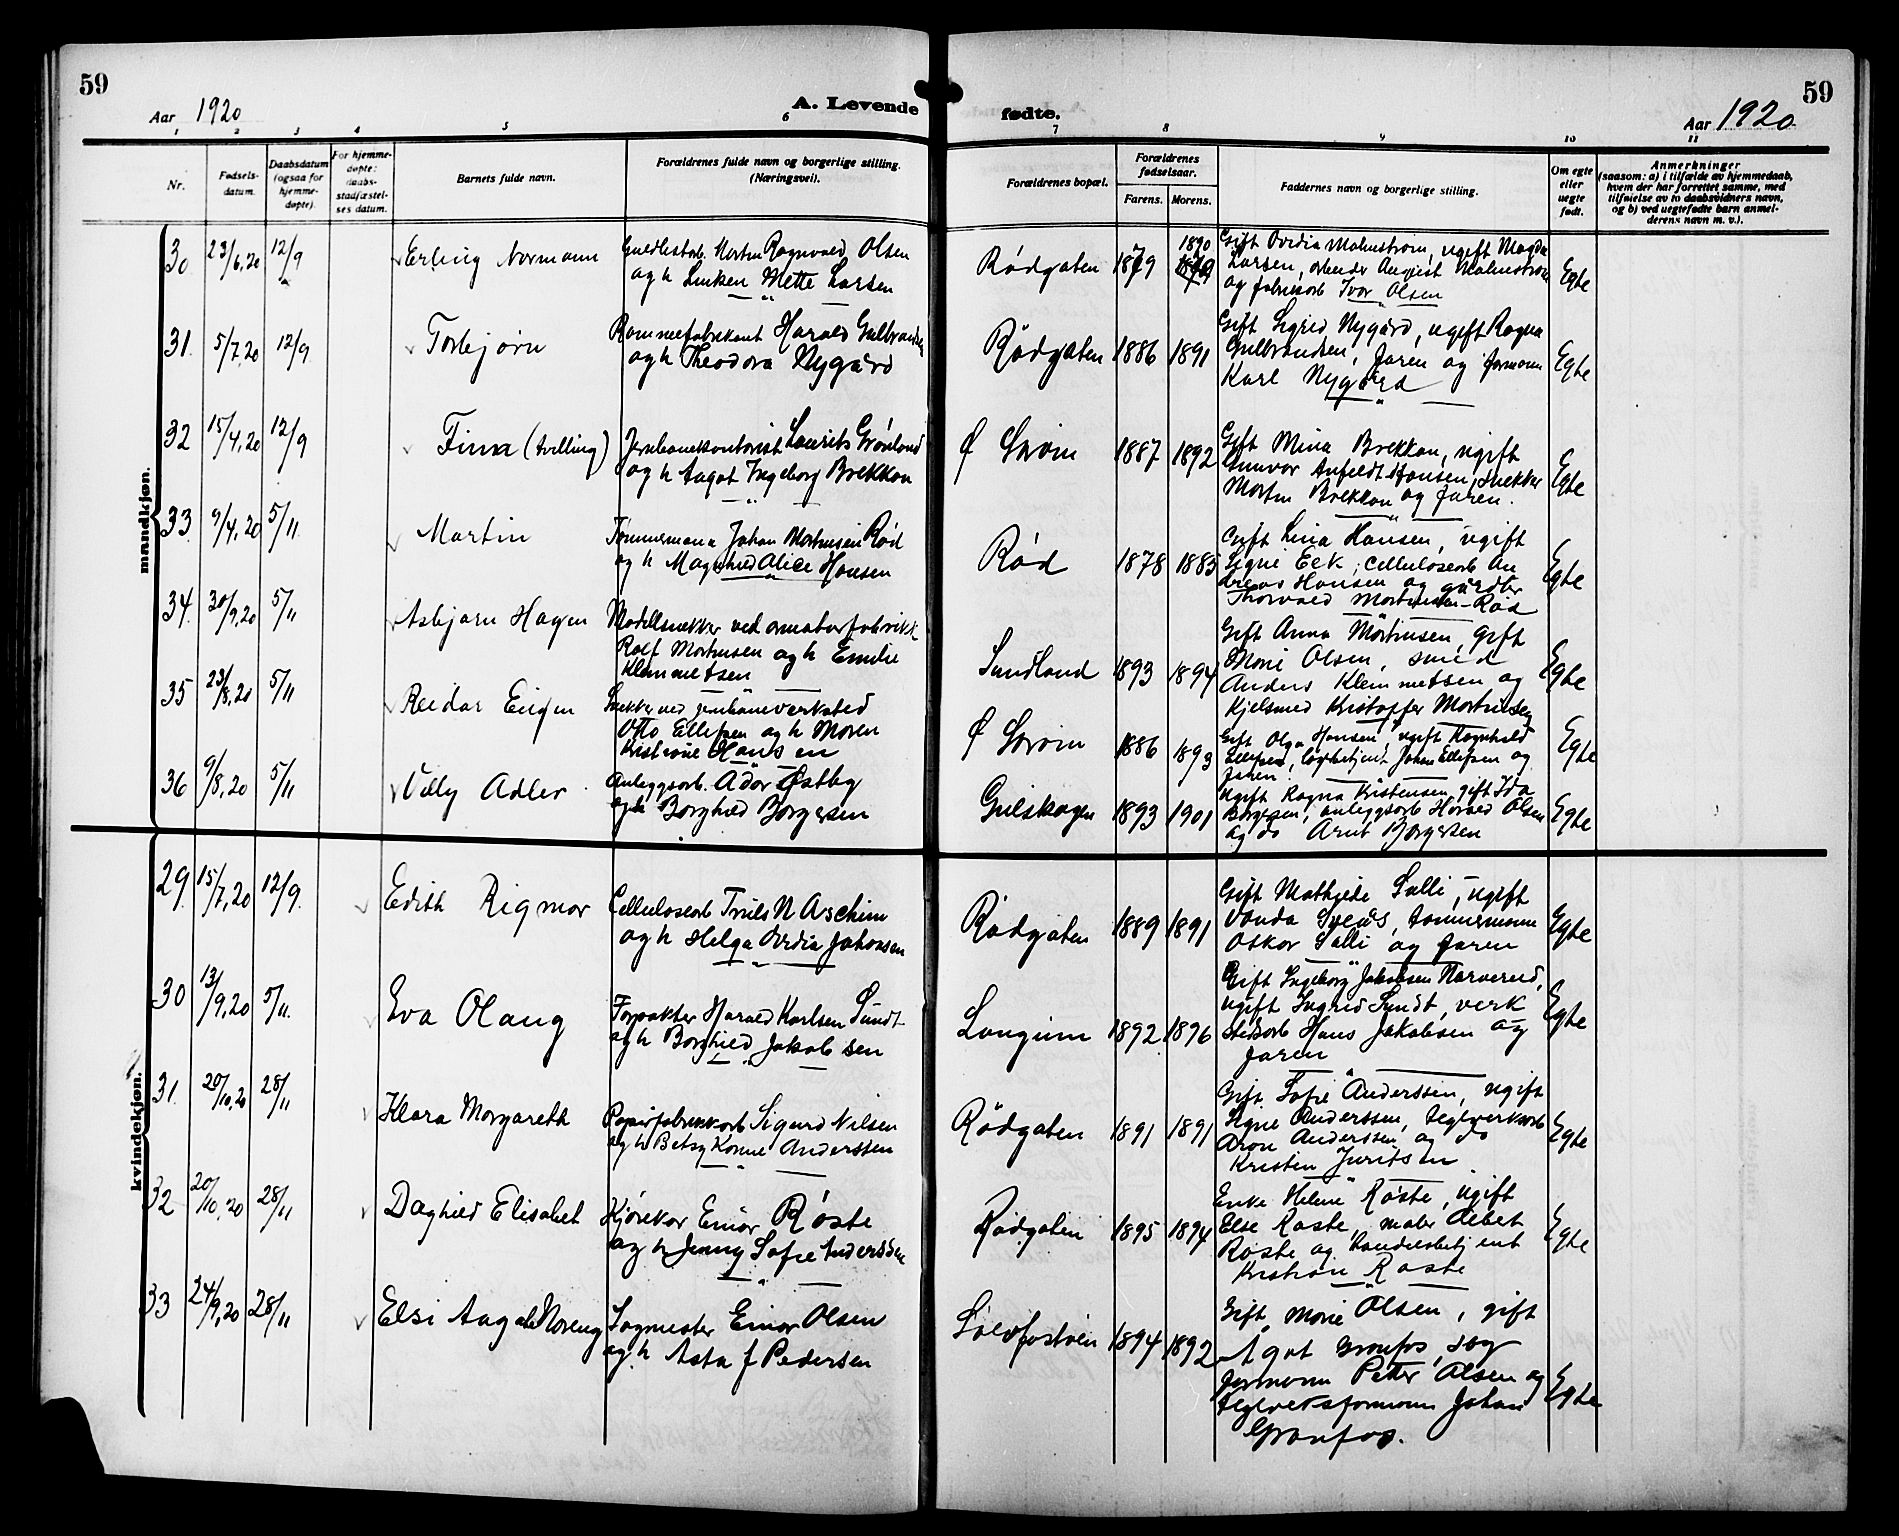 59
Aar 1920
A. Levende
1 2 3 4 5 6
Nr.
Fødsels-
datum.
Daabsdatum
(ogsaa for
hjemme-
døpte).
For hjemme-
døpte:
daabs-
stadfæstel-
ses datum.
Barnets fulde navn.
Forældrenes fulde navn og borgerlige stilling.
(Næringsvei).
mandkjøn.
30 23/6.20 12/9 Erling Normann
Morten Ragnvald Olsen
og h Mette Larsen
31. 5/7.20 12/9 Torbjørn
Rammefabrikant Harald Gulbrandsen
og h Theodora Nygård
32 15/4.20 12/9 Finn (tvilling)
Jernbanekontorist Laurits Grønlund
og h Aagot Ingeborg Brekkan
33. 9/4.20 5/11. Martin
Tømmermann Johan Mortensen Rød
og h Maghild Alice Hansen
34. 30/9.20 5/11 Asbjørn Hagen
Modellsnekker ved armaturfabrikk
Rolf Mortensen og h Emilie
Klemmetsen
35 23/8.20 5/11 Reidar Eugen
Snekker ved jernbaneverksted
Otto Ellefsen og h Maren
Kristine Hansen
36 9/8.20 5/11 Villy Adler
Anleggsarb. Ador Østby
og h Borghild Borgersen
kvindekjøn.
29. 15/7.20 12/9. Edith Rigmor
Cellulosearb Truls N Aschim
og h Helga Ovidia Johansen
30 13/9.20 5/11. Eva Olaug
Forpakter Harald Karlsen Sundt
og h Borghild Jakobsen
31. 20/10.20 28/11 Klara Margareth
Papirfabrikkarb Sigurd Nilsen
og h Betsy Konne Anderssen
32 20/10.20 28/11 Daghild Elisabet
Kjørekar Einar Røste
og h Jenny Sofie Anderssen
33 24/9.20 28/11 Elsi Aagot Noreng
Sagmester Einar Olsen
og h Asta f Pedersen
59
Aar 1920
fødte.
7 8 9 10 11
Forældrenes bopæl.
Forældrenes
fødselsaar.
Farens. Morens.
Faddernes navn og borgerlige stilling.
Om egte
eller
uegte
født.
Anmerkninger
(saasom: a) i tilfælde av hjemmedaab,
hvem der har forrettet samme, med
tilføielse av to daabsvidners navn,
og b) ved uegtefødte barn anmel-
derens navn m. v.).
Rødgaten 1879 1890
Gift Ovidia Malmstrøm, ugift Magda
Larsen, arbeider August Malmstrøm
og fabrikarb Ivar Olsen
Egte
Rødgaten 1886 1891
Gift Sigrid Nygård, ugift Ragna
Gulbrandsen, faren og formann
Karl Nygård
Egte
Ø Strøm 1887 1892
Gift Mina Brekkan, ugift
Gunvor Anfeldt Hansen, snekker
Morten Brekkan og faren.
Egte
Rød 1878 1885
Gift Lina Hansen, ugift
Signe Eek, cellulosearb An
dreas Hansen og gårdbr
Thorvald Mortensen-Rød
Egte
Sundland 1893 1894
Gift Anna Mortensen, gift
Marie Olsen, smed
Anders Klemmetsen og
Kjelsmed Kristoffer Mortensen
Egte
Ø Strøm 1886 1893
Gift Olga Hansen, ugift Ragnhild
Ellefsen, Johan Ellefsen og
faren.
Egte
Gulskogen 1893 1901
Ugift Ragna Kristensen, gift Ida
Borgersen, anleggsarb Harald Olsen
og do Arnt Borgersen
Egte
Rødgaten 1889 1891
Gift Mathilde Salli, ugift
Vanda Svelås, tømmermann
Oskar Salli og faren
Egte
Langum 1892 1896
Gift Ingeborg Jakobsen Narverud,
ugift Ingrid Sundt, verk
stedsarb Hans Jakobsen og
faren
Egte
Rødgaten 1891 1891
Gift Sofie Anderssen, ugift
Signe Anderssen, teglverksarb
Aron Anderssen og do
Kristen Juritsen
Egte
Rødgaten 1895 1894
Enke Helene Røste, ugift
Else Røste, maler Albert
Røste og handelsbetjent
Kristian Røste
Egte
Sølvfastøen 1894 1892
Gift Marie Olsen, gift
Agot Granfos, sag
formann Petter Olsen og
teglverksformann Johan
Granfos.
Egte